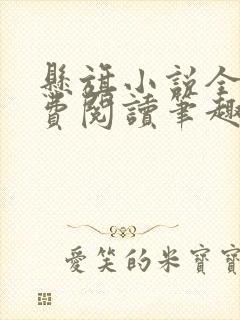 懸旌小說全
費閱讀筆趣
愛笑的米寶寶